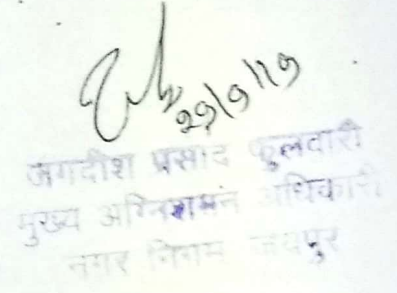 29/9/19
जगदीश प्रसाद फुलवारी
मुख्य अग्निशमन अधिकारी
नगर निगम जयपुर